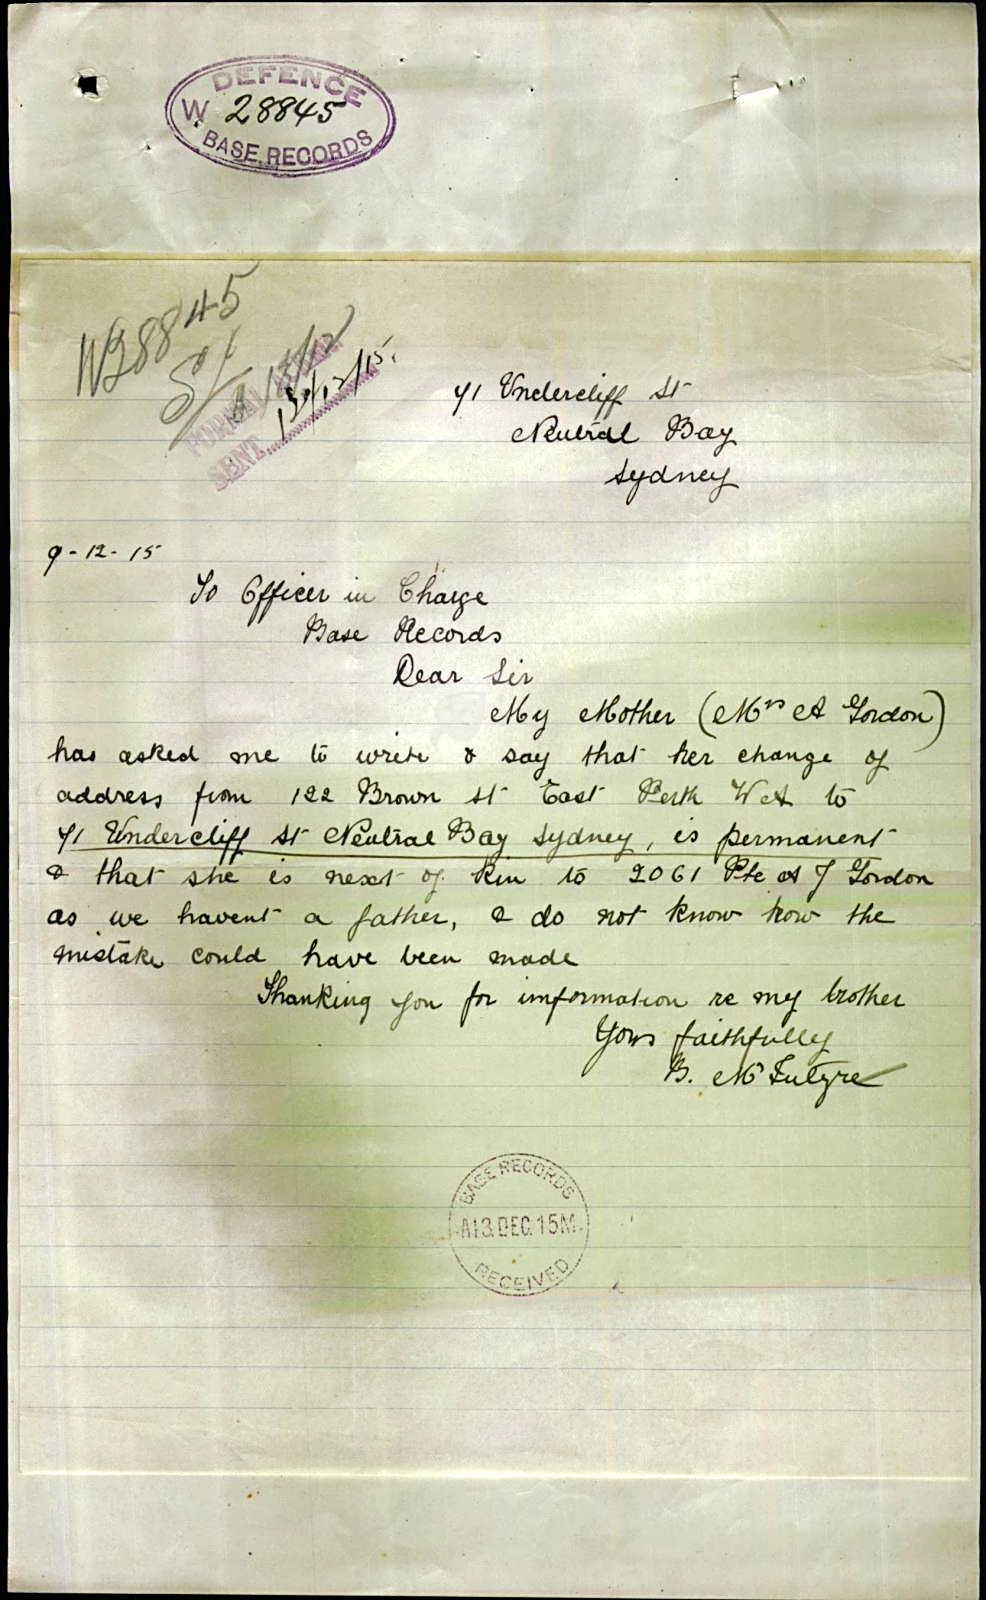 DEFENCE
W 28845
BASE RECORDS
W28845
S/
13/12
FORMAL
SENT 13/12/15.
71 Undercliff St
Neutral Bay
Sydney
9-12-15
To Officer in Charge
Base Records
Dear Sir
My Mother (Mrs A Gordon)
has asked me to write & say that her change of
address from 122 Brown St East Perth WA to
71 Undercliff St Neutral Bay Sydney, is permanent
& that she is next of kin to 2061 Pte A J Gordon
as we havent a father, & do not know how the
mistake could have been made
Thanking you for information re my brother
Yours faithfully
B. McIntyre
BASE RECORDS
A13 DEC. 15M
RECEIVED